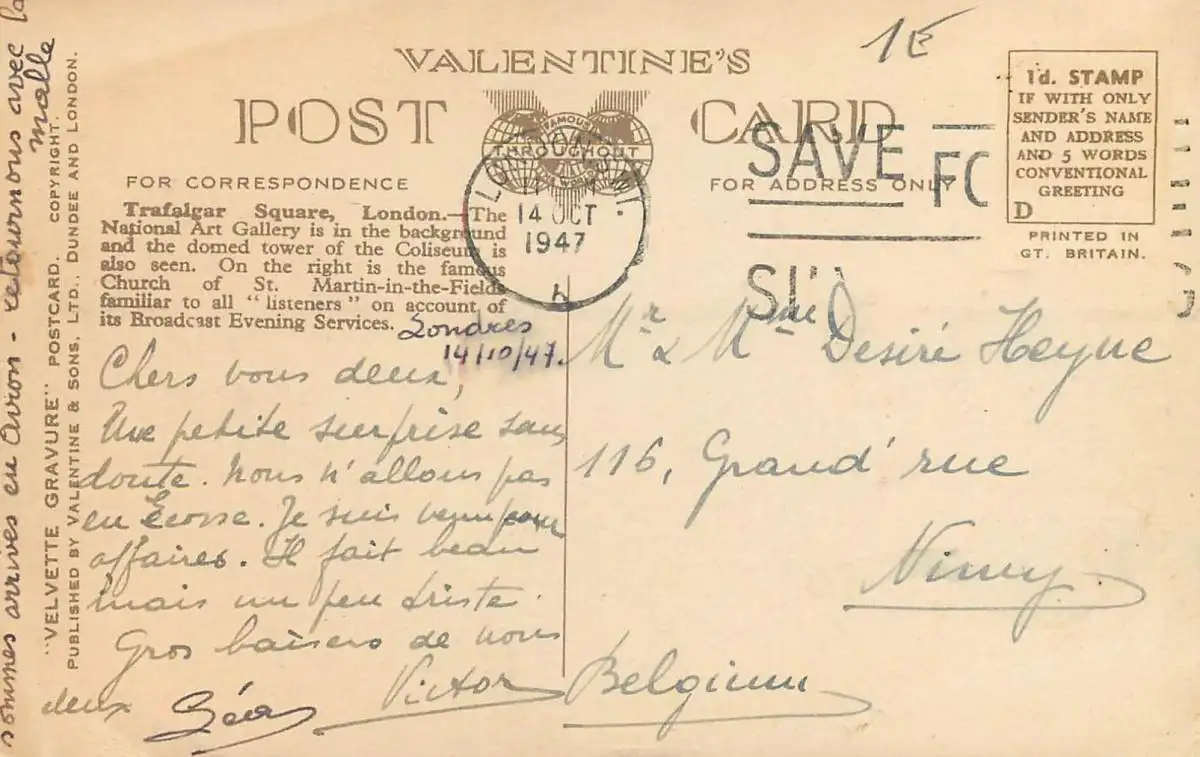 VALENTINE'S
POST CARD
FAMOUS
THROUGHOUT
THE WORLD
FOR CORRESPONDENCE
FOR ADDRESS ONLY
1d. STAMP
IF WITH ONLY
SENDER'S NAME
AND ADDRESS
AND 5 WORDS
CONVENTIONAL
GREETING
D
PRINTED IN
GT. BRITAIN.
1E
14 OCT
1947
SAVE
Trafalgar Square, London.—The
National Art Gallery is in the background
and the domed tower of the Coliseum is
also seen. On the right is the famous
Church of St. Martin-in-the-Fields
familiar to all "listeners" on account of
its Broadcast Evening Services.
Londres
14/10/47.
Chers vous deux,
Une petite surprise sans
doute. Nous n'allons pas
en Ecosse. Je suis venu pour
affaires. Il fait beau
mais un peu triste.
Gros baisers de nous
deux
Victor
Mr & Mme Desiré Heyne
116, Grand' rue
Nimy
Belgium
"VELVETTE GRAVURE" POSTCARD. COPYRIGHT.
PUBLISHED BY VALENTINE & SONS, LTD., DUNDEE AND LONDON.
sommes arrivés en avion - retournons avec la
malle